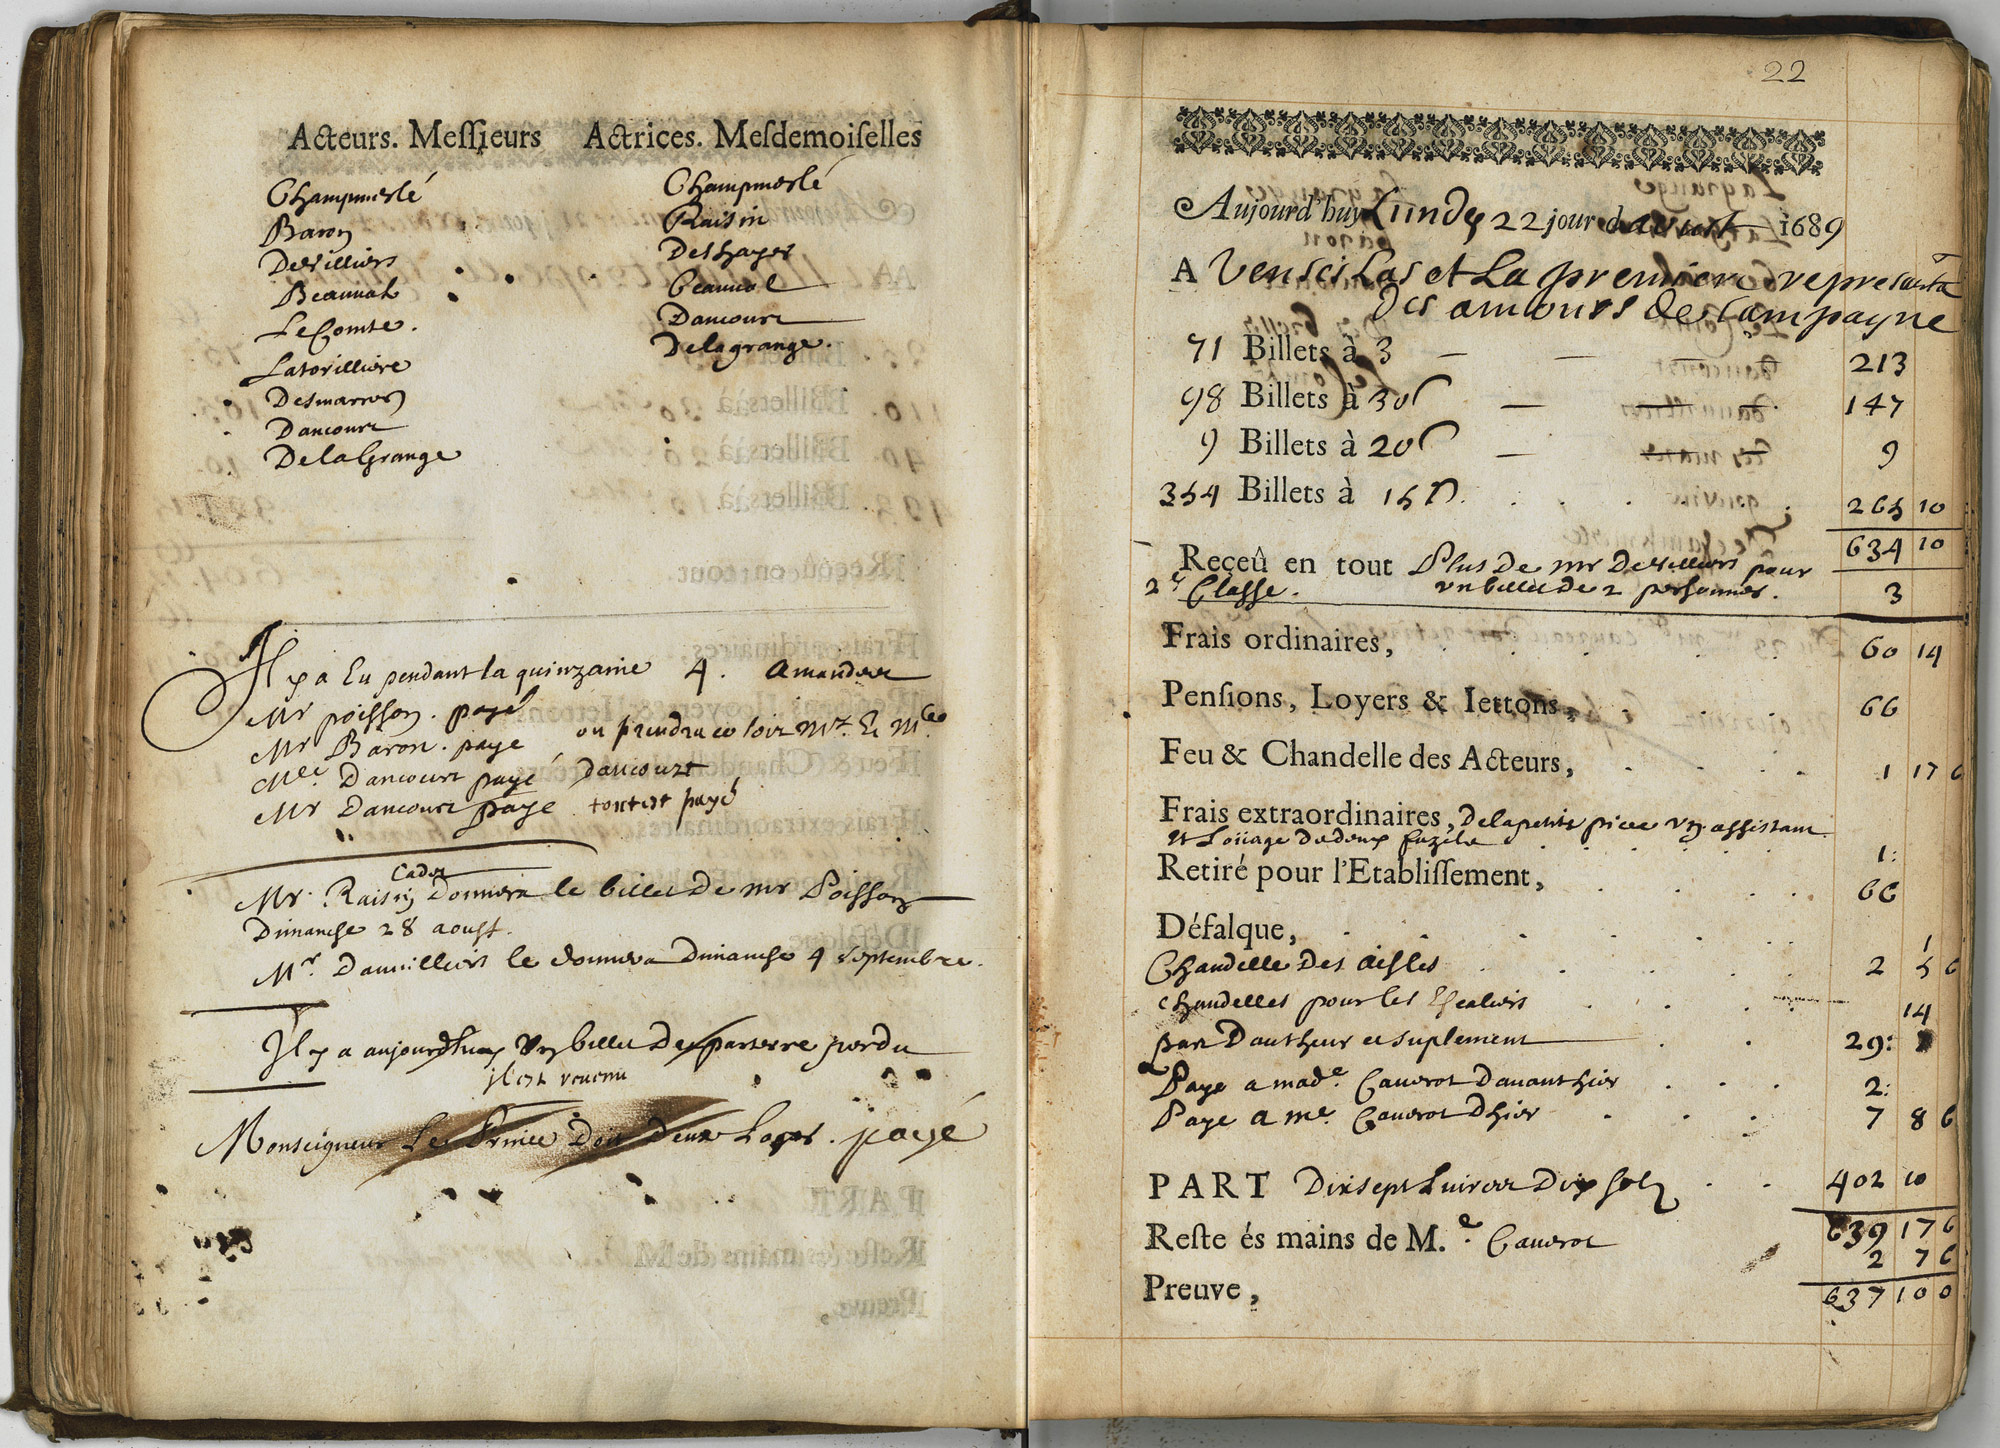 Acteurs. Meſſieurs
Champmeslé
Baron
Devilliers
Beauval
LeComte.
Latorilliere
Desmarres
Dancourt
DelaGrange
Actrices. Meſdemoiſelles
Champmeslé
Raisin
Deshayes
Beauval
Dancourt
Delagrange.
Il y a Eu pendant la quinzaine 4. Amandes
Mr poisson. payé
Mr Baron. payé
Mlle Dancourt payé
Mr Dancourt paye
on prendra ce soir Mr. & Mlle
Dancourt
tout est payé
Mr. Raisin Cadet Donnera le billet De mr Poisson
Dimanche 28 aoust.
Mr. Dauvilliers le donnera Dimanche 4 Septembre.
Il y a aujourdhuy Un billet De parterre perdu
il est revenu
Monseigneur Le Prince Doit Deux Loges. payé
22
Aujourd'huy Lundy 22 jour daoust 1689
A Venseslas et La premiere represanta
Des amours De Campagne
71 Billets à 3 213
98 Billets à 30ſ 147
9 Billets à 20ſ 9
354 Billets à 15ſ 265 10
634 10
Reçeû en tout Plus De mr Devilliers pour
2e Classe. un billet De 2 personnes. 3
Frais ordinaires, 60 14
Penſions, Loyers & Iettons, 66
Feu & Chandelle des Acteurs, 1 17 6
Frais extraordinaires, De la petite piece un assistant
et Loüage De deux fuzils 1:
Retiré pour l'Etabliſſement, 66
Défalque, 1
Chandelle Des aisles 2 5 6
chandelles pour les Escaliers 14
part Dautheur et suplement 29:
Paye a made. Cauerot Dauanthier 2:
Paye a me. Cauerot Dhier 7 8 6
PART Dix sept Livres Dix solz 402 10
639 17 6
Reſte és mains de M.e Cauerot 2 7 6
Preuve, 637 10 0